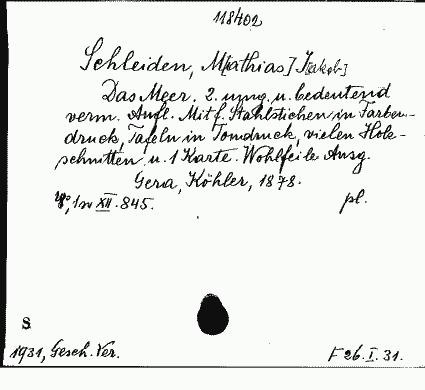 118402
Schleiden, M[athias] J[akob]
Das Meer. 2. umg. u. bedeutend
verm. Aufl. Mit f. Stahlstichen in Farben-
druck, Tafeln in Tondruck, vielen Holz-
schnitten u. 1 Karte. Wohlfeile Ausg.
Gera, Köhler, 1878.
XII. 845. pl.
S
1931, Gesch. Ver. F 26. I. 31.